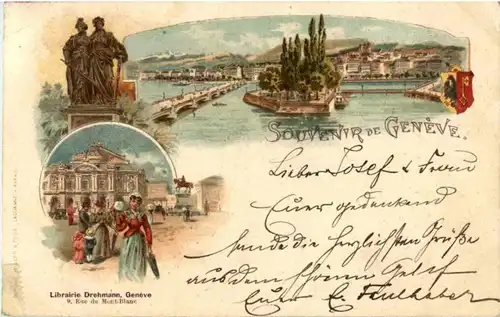 SOUVENIR DE GENÈVE.
Lieber Josef & Frau
Euer gedenkend
sende die herzlichsten Grüße
aus dem schönen Genf
Euer E. Faulhaber
Librairie Drehmann, Genève
9, Rue du Mont-Blanc